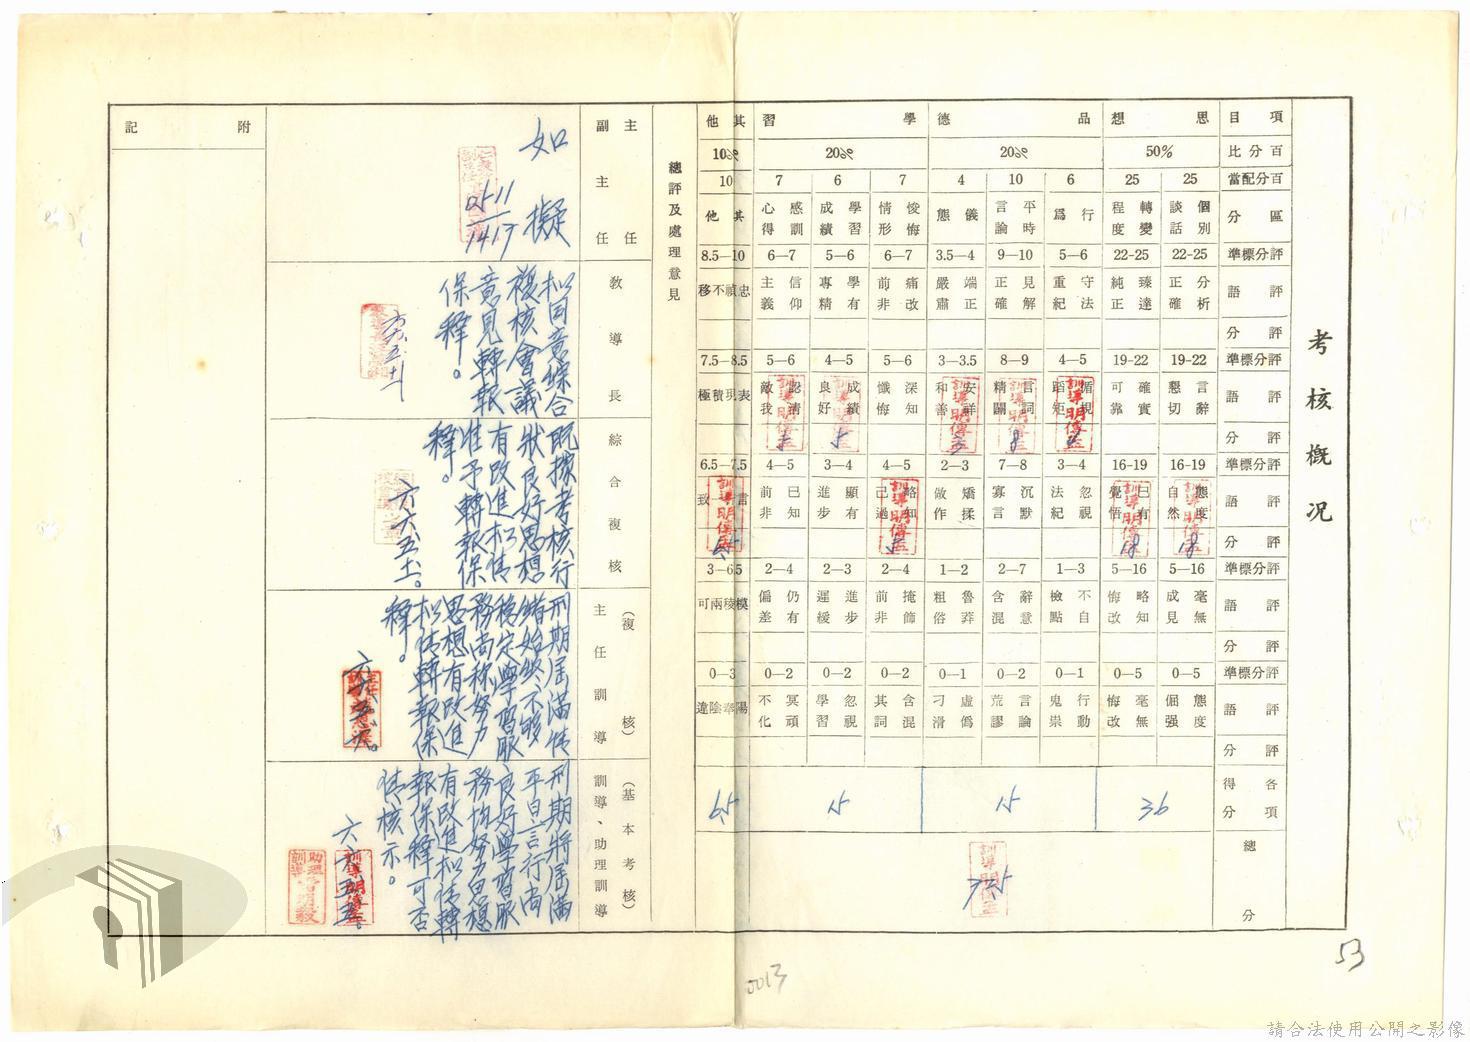 考核概況
項目
思想
品德
學習
其他
百分比
50%
20%
20%
10%
百分配當
25
25
6
10
4
7
6
7
10
區分
個別談話
轉變程度
行為
平時言論
儀態
悛悔情形
學習成績
感訓心得
其他
評分標準
22-25
22-25
5—6
9—10
3.5—4
6—7
5—6
6—7
8.5—10
評語
分析正確
臻達純正
守法重紀
見解正確
端正嚴肅
痛改前非
學有專精
信仰主義
忠禎不移
評分
評分標準
19-22
19-22
4—5
8—9
3—3.5
5—6
4—5
5—6
7.5—8.5
評語
言辭懇切
確實可靠
循規蹈矩
言詞精闢
安祥和善
深知懺悔
成績良好
認清敵我
表現積極
評分
8
3
5
5
評分標準
16-19
16-19
3—4
7—8
2—3
4—5
3—4
4—5
6.5—7.5
評語
態度自然
已有覺悟
忽視法紀
沉默寡言
矯揉做作
略知己過
顯有進步
已知前非
言一致
評分
18
18
5
6.5
評分標準
5—16
5—16
1—3
2—7
1—2
2—4
2—3
2—4
3—6.5
評語
毫無成見
略知悔改
不自檢點
辭意含混
魯莽粗俗
掩飾前非
進步遲緩
仍有偏差
模稜兩可
評分
評分標準
0—5
0—5
0—2
0—2
0—1
0—2
0—2
0—2
0—3
評語
態度倔强
毫無悔改
行動鬼祟
言論荒謬
虛偽刁滑
含混其詞
忽視學習
冥頑不化
陽奉陰違
評分
各項得分
36
15
15
6.5
總分
72.5
訓導明傳孟
總評及處理意見
主任
副主任
如擬
教導長
擬同意綜合
複核會議
意見轉報
保釋。
綜合複核
既據考核行
狀良好思想
有改進擬情
准予轉報保
釋。
六六、五、十一。
(複核)
主任訓導
刑期屆滿情
緒始終不夠
穩定學習服
務尚称努力
思想有改進
擬情轉報保
釋。
(基本考核)
訓導、助理訓導
刑期將屆滿
平日言行尚
良好學習服
務均努力思想
有改進擬情轉
報保釋可否
請核示。
六六、五、五。
附記
53
0013
請合法使用公開之影像